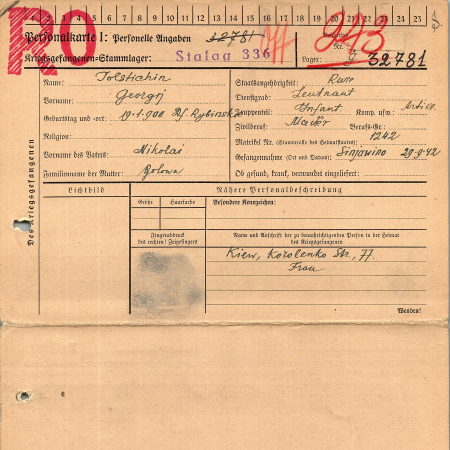 1 2 3 4 5 6 7 8 9 10 11 12 13 14 15 16 17 18 19 20 21 22 23
RO
Personalkarte I: Personelle Angaben
32781
77
243
Kriegsgefangenen-Stammlager: Stalag 336
Nr.
Lager: 32781
Des Kriegsgefangenen
Name: Tolstichin
Vorname: Georgij
Geburtstag und -ort: 19.1.900 Rybinsk
Religion:
Vorname des Vaters: Nikolai
Familienname der Mutter: Golowa
Staatsangehörigkeit: Russe
Dienstgrad: Leutnant
Truppenteil: Infant. Komp. usw.:
Zivilberuf: Berufs-Gr.:
Matrikel Nr. (Stammrolle des Heimatstaates): 1242
Gefangennahme (Ort und Datum): Sinjawino 29-9-42
Ob gesund, krank, verwundet eingeliefert:
Lichtbild
Nähere Personalbeschreibung
Größe
Haarfarbe
Besondere Kennzeichen:
Fingerabdruck
des rechten! Zeigefingers
Name und Anschrift der zu benachrichtigenden Person in der Heimat
des Kriegsgefangenen
Kiew, Korolenko Str., 77.
Frau
Wenden!